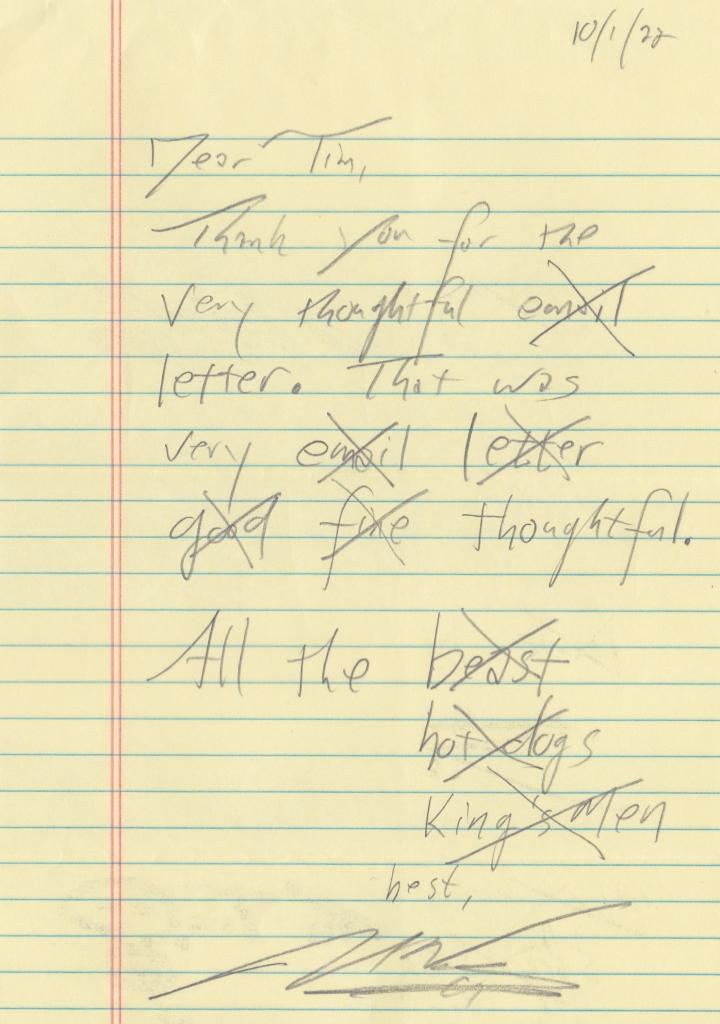 10/1/22
Dear Tim,
Thank you for the
very thoughtful email
letter. That was
very email letter
good fine thoughtful.
All the beast
hot dogs
King's Men
best,